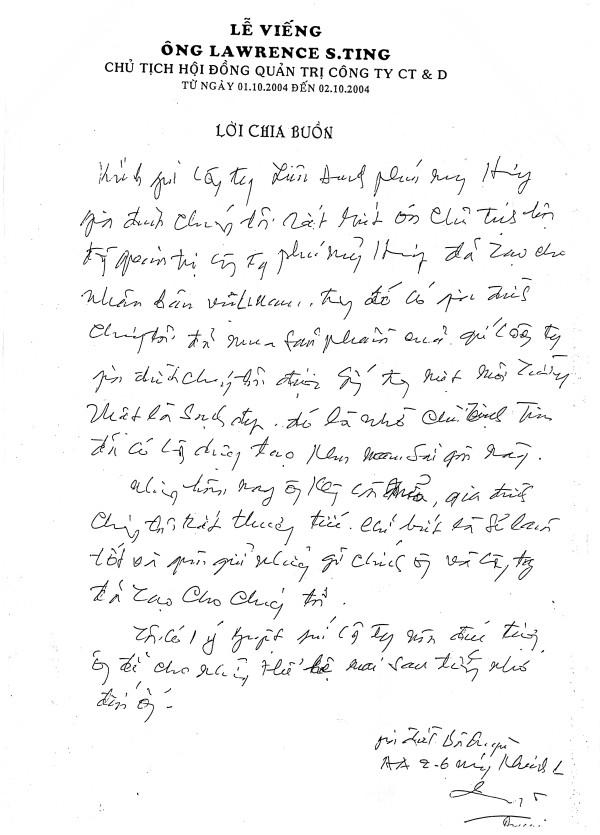 LỄ VIẾNG
ÔNG LAWRENCE S.TING
CHỦ TỊCH HỘI ĐỒNG QUẢN TRỊ CÔNG TY CT & D
TỪ NGÀY 01.10.2004 ĐẾN 02.10.2004
LỜI CHIA BUỒN
Kính gửi Công ty Liên Doanh phú mỹ Hưng
gia đình chúng tôi rất biết ơn chủ tịch hội
đồng quản trị công ty phú mỹ Hưng đã tạo cho
nhân dân trong đó có gia đình
chúng tôi đã mua sản phẩm của quí công ty
gia đình chúng tôi được sống một môi trường
thật là sạch đẹp. đó là nhờ chủ tịch Tin
đã có công dựng tạo khu nam Sài gòn này.
nhưng hôm nay ông không còn nữa, gia đình
chúng tôi rất thương tiếc. chỉ biết là sẽ làm
tốt và gìn giữ những gì chính ông và công ty
đã tạo cho chúng tôi.
Tôi có 1 ý quí công ty nên đúc tượng
ông để cho những thế hệ mai sau tưởng nhớ
đến ông.
gia đình
AA 2-6 Mỹ Khánh 1